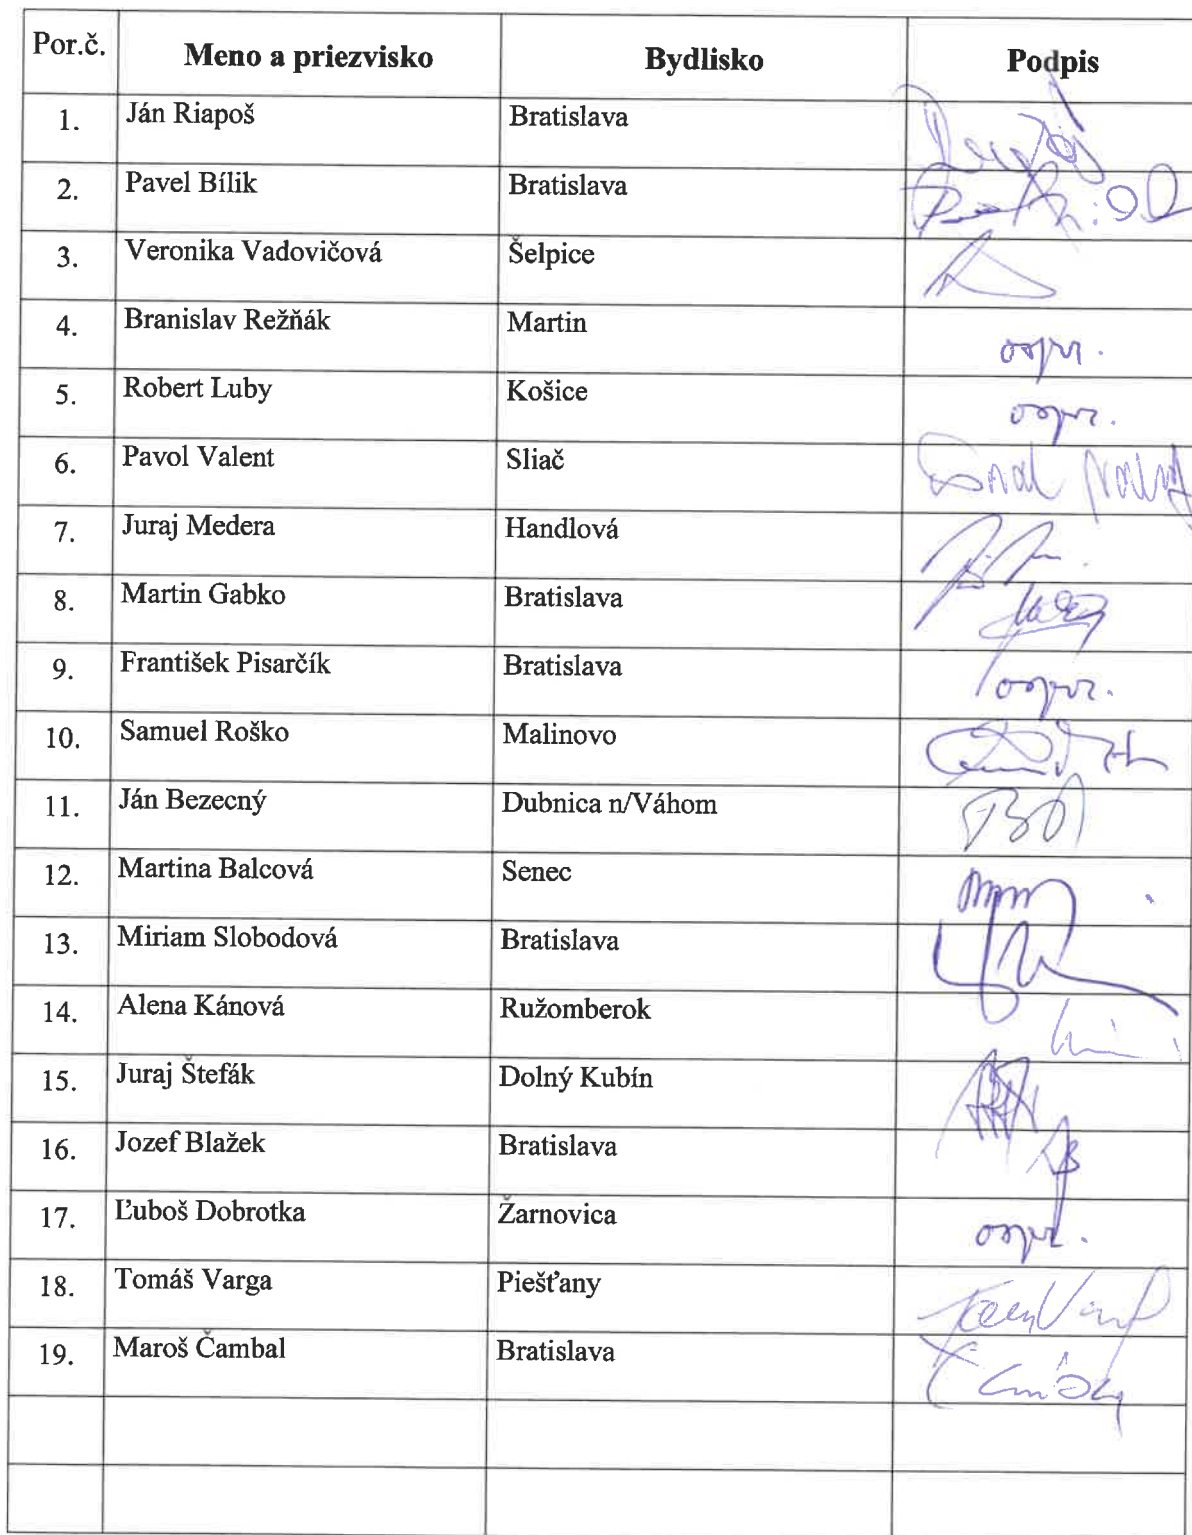 Por.č. Meno a priezvisko Bydlisko Podpis
1. Ján Riapoš Bratislava
2. Pavel Bílik Bratislava
3. Veronika Vadovičová Šelpice
4. Branislav Režňák Martin ospr.
5. Robert Luby Košice ospr.
6. Pavol Valent Sliač
7. Juraj Medera Handlová
8. Martin Gabko Bratislava
9. František Pisarčík Bratislava ospr.
10. Samuel Roško Malinovo
11. Ján Bezecný Dubnica n/Váhom
12. Martina Balcová Senec
13. Miriam Slobodová Bratislava
14. Alena Kánová Ružomberok
15. Juraj Štefák Dolný Kubín
16. Jozef Blažek Bratislava
17. Ľuboš Dobrotka Žarnovica ospr.
18. Tomáš Varga Piešťany
19. Maroš Čambal Bratislava